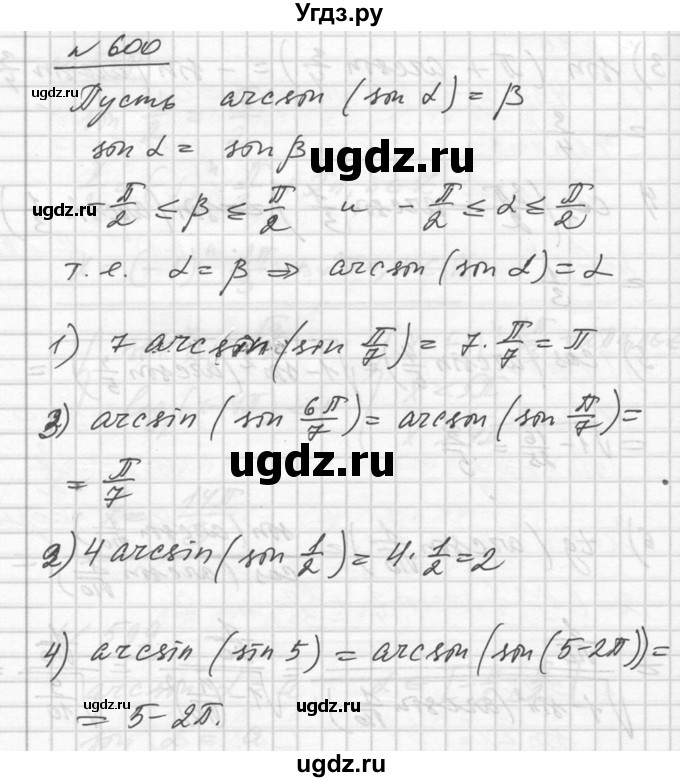 Угдз.ру
№ 600
ugdz.ru
Пусть arcsin (sin α) = β
sin α = sin β
ugdz.ru
ugdz.ru
-π/2 ≤ β ≤ π/2 и -π/2 ≤ α ≤ π/2
т. е. α = β ⇒ arcsin (sin α) = α
1) 7 arcsin (sin π/7) = 7 · π/7 = π
3) arcsin (sin 6π/7) = arcsin (sin π/7) =
= π/7
ugdz.ru
2) 4 arcsin (sin 1/2) = 4 · 1/2 = 2
4) arcsin (sin 5) = arcsin (sin (5-2π)) =
= 5-2π.
ugdz.ru
ugdz.ru
ugdz.ru
Угдз.ру